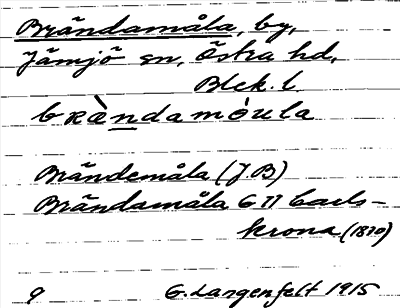 Brändamåla, by,
Jämjö sn, Östra hd,
Blek. l.
brä̀ndamòula
Brändemåla (J.B)
Brändamåla G 11 Carls-
krona (1870)
9 G. Langenfelt 1915